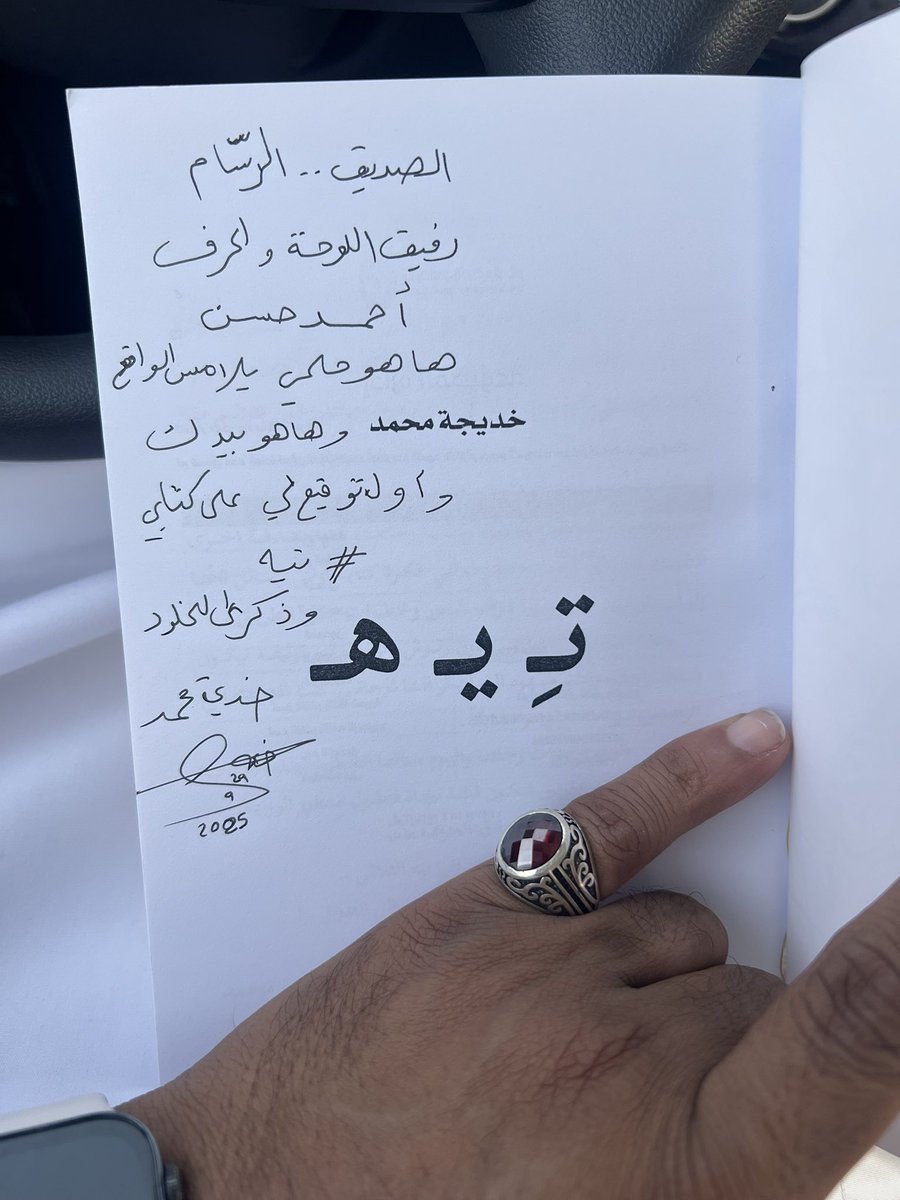 الصديق .. الرسّام
رفيق اللوحة والحرف
أحمد حسن
ها هو حلمي يلامس الواقع
خديجة محمد
وها هو بيدك
وأول توقيع لي على كتابي
# تيه
وذكرى للخلود
تِـ يـ هـ
خديجة محمد
29
9
2025